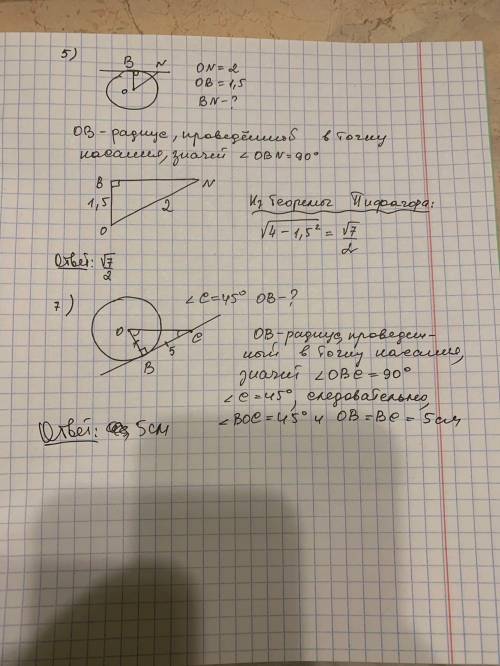 5)
B N
O
ON = 2
OB = 1,5
BN - ?
OB - радиус, проведённый в точку
касания, значит ∠OBN = 90°
B N
1,5 2
O
Из теоремы Пифагора:
√(4 - 1,5²) = √7/2
Ответ: √7/2
7)
∠C = 45° OB - ?
O C
5
B
OB - радиус, проведен-
ный в точку касания,
значит ∠OBC = 90°
∠C = 45°, следовательно,
∠BOC = 45° и OB = BC = 5 см
Ответ: 5 см